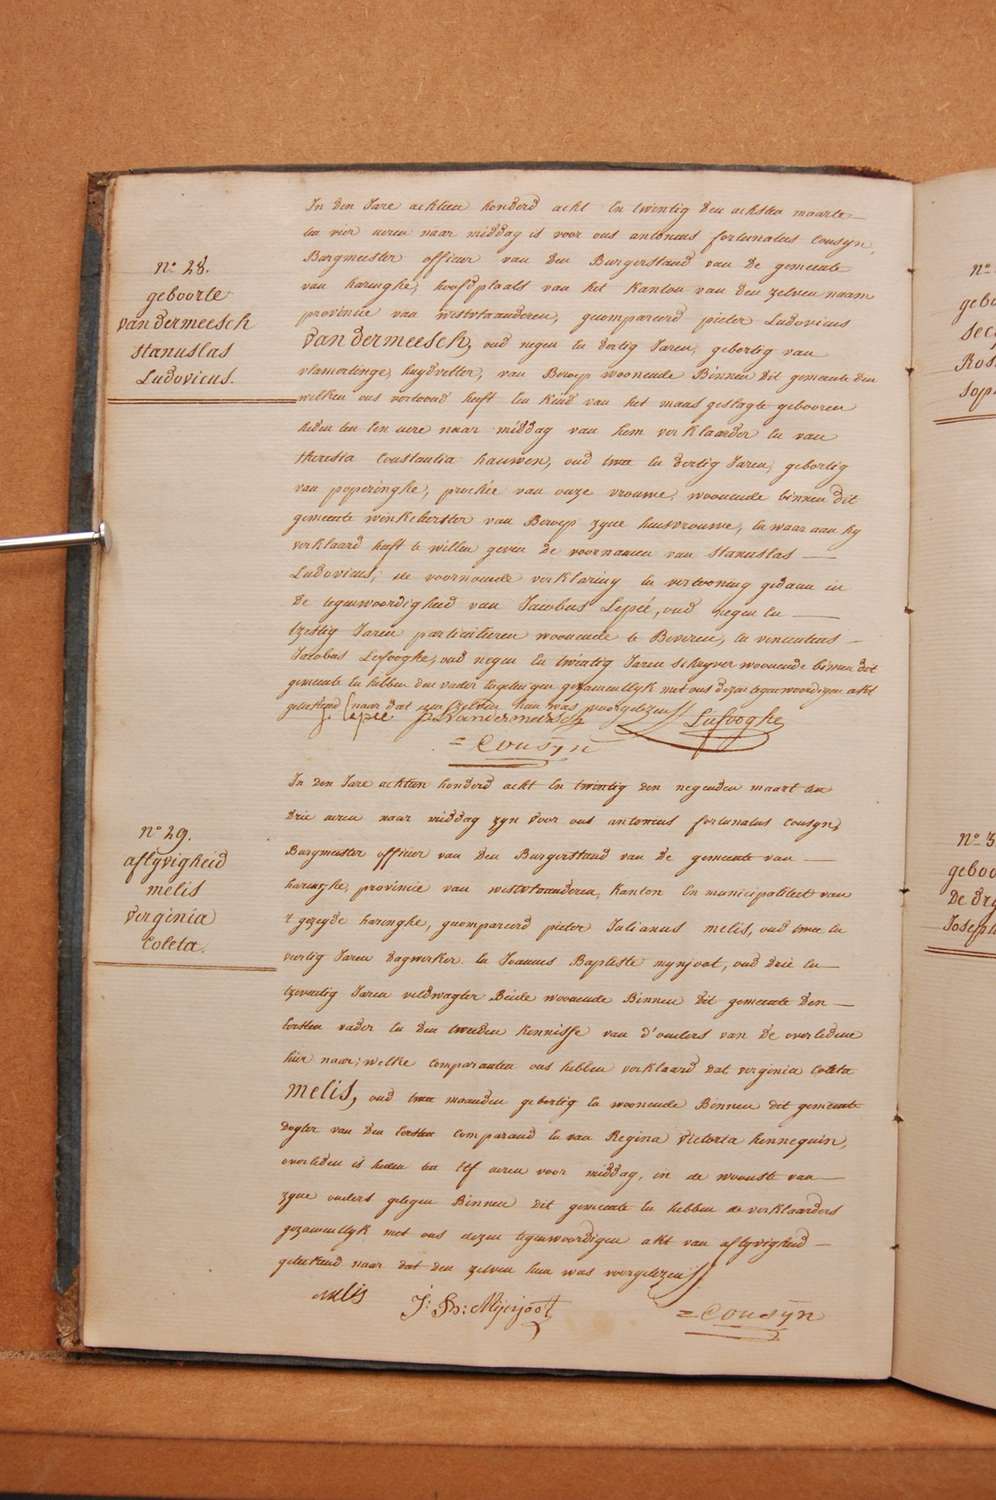 N° 28.
geboorte
van dermeesch
stanuslas
Ludovicus.
In den Jare achtien honderd acht En twintig den achsten maarte
ten vier uren naar middag is voor ons antonius fortunatus Cousyn,
Burgmeester officier van den Burgerstand van de gemeente
van haringhe, hoofdplaats van het kanton van den zelven naam
provincie van westvlaanderen, gecompareerd pieter Ludovicus
van dermeesch, oud negen en dertig Jaren, gebortig van
vlamertinge, huydvetter, van Beroep woonende Binnen dit gemeente den
welken ons vertoond heeft Een kind van het maas geslagte gebooren
heden ten Een uere naar middag van hem verklaarder en van
theresia Constantia hauwen, oud twee en dertig Jaren, gebortig
van poperinghe, prochie van onze vrouwe, woonende binnen dit
gemeente winkelierster van Beroep zyne huisvrouwe, en waar aan hy
verklaard heeft te willen geven de voornamen van Stanuslas
Ludovicus, de voornoemde verklaring en vertooning gedaan in
de tegenwoordigheid van Jacobus Lepée, oud negen en
tzestig Jaren particulieren woonende te Beveren, en vincentius
Jacobus Lefooghe, oud negen En twintig Jaren schryver woonende binnen dit
gemeente en hebben den vader en getuigen gezamentlyk met ons dezen tegenwoordigen akt
geteekend naar dat den zelven hun was voorgelezen
J. Lepée P. L. Vandermeersch Lefooghe
= Cousÿn
N° 29.
aflyvigheid
melis
virginia
Coleta.
In den Jare achtien honderd acht En twintig den negenden maart ten
drie uren naar middag zyn voor ons antonius fortunatus Cousyn,
Burgmeester officier van den Burgerstand van de gemeente van
haringhe, provincie van westvlaanderen, kanton En municipaliteit van
't gezegde haringhe, gecompareerd pieter Julianus melis, oud twee en
viertig Jaren dagwerker en Joannes Baptiste mynjoot, oud drie en
tzeventig Jaren veldwagter Beide woonende Binnen dit gemeente den
Eersten vader en den tweeden kennisse van d'ouders van de overledene
hier naar; welke comparanten ons hebben verklaard dat virginia Coleta
Melis, oud twee maanden gebortig en woonende Binnen dit gemeente
dogter van den Eersten comparand en van Regina victoria hennequin,
overleden is heden ten Elf uren voor middag, in de woonste van
zyne ouders gelegen Binnen dit gemeente en hebben de verklaarders
gezamentlyk met ons dezen tegenwoordigen akt van aflyvigheid
geteekend naar dat den zelven hun was voorgelezen
melis J: Bs: Mijnjoot = Cousÿn